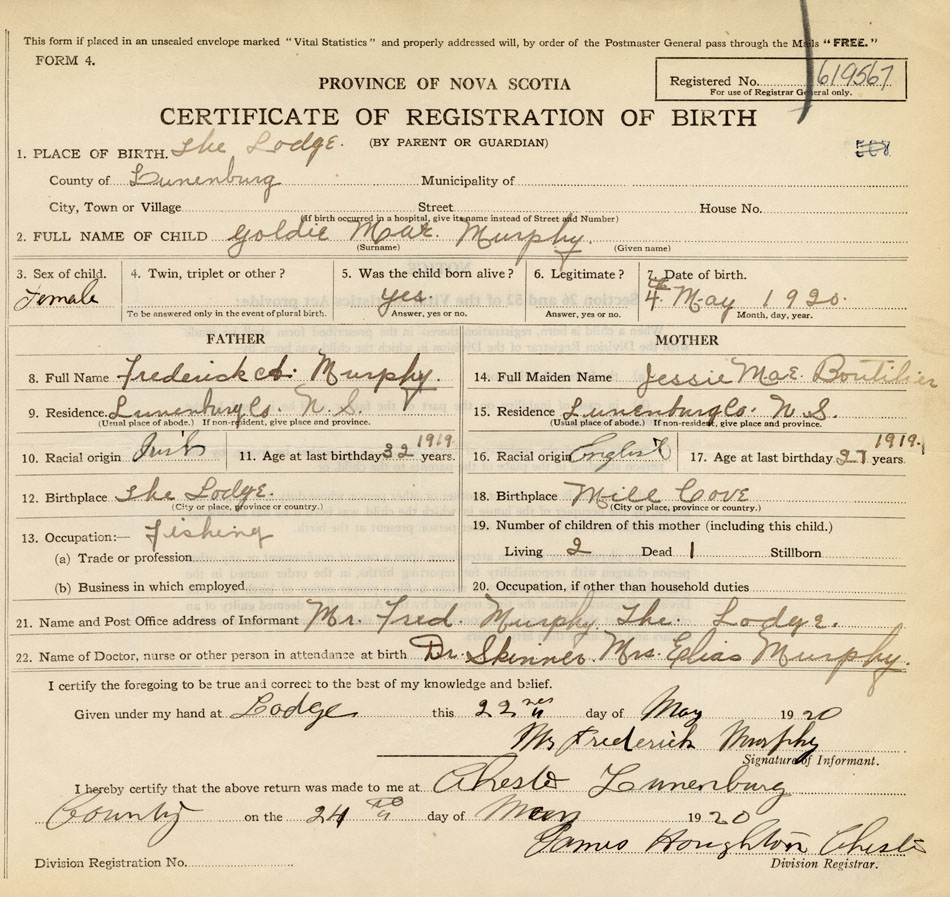 This form if placed in an unsealed envelope marked "Vital Statistics" and properly addressed will, by order of the Postmaster General pass through the Mails "FREE."
FORM 4.
PROVINCE OF NOVA SCOTIA
Registered No. 619567
For use of Registrar General only.
CERTIFICATE OF REGISTRATION OF BIRTH
(BY PARENT OR GUARDIAN)
1. PLACE OF BIRTH. The Lodge.
County of Lunenburg Municipality of
City, Town or Village Street House No.
(If birth occurred in a hospital, give its name instead of Street and Number)
2. FULL NAME OF CHILD Goldie Mae. Murphy.
(Surname) (Given name)
3. Sex of child. 4. Twin, triplet or other? 5. Was the child born alive? 6. Legitimate? 7. Date of birth.
Female yes. 4 May 1920.
To be answered only in the event of plural birth. Answer, yes or no. Answer, yes or no. Month, day, year.
FATHER MOTHER
8. Full Name Frederick A. Murphy. 14. Full Maiden Name Jessie Mae. Boutilier
9. Residence. Lunenburg Co. N. S. 15. Residence Lunenburg Co. N. S.
(Usual place of abode.) If non-resident, give place and province. (Usual place of abode.) If non-resident, give place and province.
10. Racial origin Irish 11. Age at last birthday 32 years. 1919. 16. Racial origin English 17. Age at last birthday 27 years. 1919.
12. Birthplace The Lodge. 18. Birthplace Mill Cove
(City or place, province or country.) (City or place, province or country.)
13. Occupation:— Fishing 19. Number of children of this mother (including this child.)
(a) Trade or profession Living 2 Dead 1 Stillborn
(b) Business in which employed 20. Occupation, if other than household duties
21. Name and Post Office address of Informant Mr. Fred. Murphy. The. Lodge.
22. Name of Doctor, nurse or other person in attendance at birth Dr. Skinner. Mrs. Elias Murphy.
I certify the foregoing to be true and correct to the best of my knowledge and belief.
Given under my hand at Lodge this 22 day of May 1920
Mr Frederick Murphy
Signature of Informant.
I hereby certify that the above return was made to me at Chester Lunenburg
County on the 24 day of May 1920
James Houghton Chester
Division Registration No. Division Registrar.